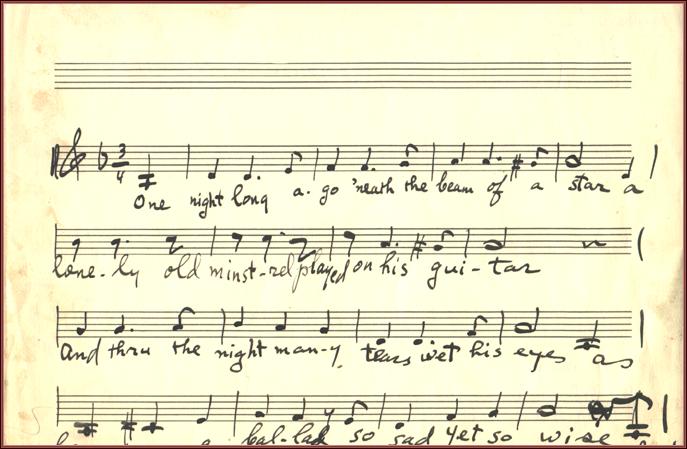 3
4
One night long a-go 'neath the beam of a star a
lone-ly old minst-rel played on his gui-tar
And thru the night man-y tears wet his eyes as
a bal-lad so sad yet so wise